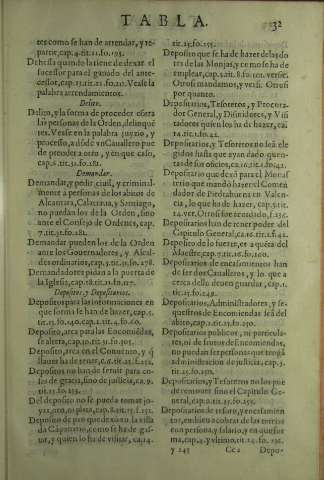 TABLA.
32
tes como se han de arrendar, y re-
partir, cap. 4. tit. 11. fo. 195.
Dehesa quando la tiene de dexar el
sucessor para el ganado del ante-
cessor, cap. 15. tit. 11. fo. Vease la
palabra arrendamientos.
Delito.
Delito, y la forma de proceder côtra
las personas de la Orden, delinquê
tes. Vease en la palabra juyzio, y
processo, a dôde vn Cauallero pue
de preder a otro, y en que caso,
cap. 5. tit. fo. 281.
Demandar.
Demandar, y pedir, ciuil, y criminal-
mente a personas de los abitos de
Alcantara, Calatraua, y Santiago,
no puedan los de la Orden, sino
ante el Consejo de Ordenes, cap.
7. tit. fo. 281.
Demandar pueden los de la Orden
ante los Gouernadores, y Alcal-
des ordinarios, cap. 3. tit. fo. 278.
Demandadores pidan a la puerta de
la Iglesia, cap. 18. tit. fo. 117.
Depositos, y Depositarios.
Depositos para las informaciones en
que forma se han de hazer, cap. 5.
tit. fo. 40. cap. 2. tit. 4. fo. 60.
Deposito, arca para las Encomiêdas,
se altera, cap. fo. 105.
Deposito, arca en el Conuento, y q̃
llaues ha de tener, fo. 150.
Depositos no han de seruir para co-
sas de gracia, sino de justicia, ca. 9.
tit. 15. fo.
Del deposito no se pueda tomar jo-
yas, oro, ni plata, cap. 6. tit. 15. f. 151.
Deposito de pro que de xô en la villa
dâ Capatero, como se ha de gas-
tar, y quien lo ha de visitar, ca. 14.
tit. 15. fo. 155.
Deposito que se ha de hazer de las do
tes de las Monjas, y como se ha de
emplear, cap. 2. tit. 8. fo. 101. verse.
Otrosi mandamos, y versi. Otrosi
por quanto.
Depositarios, Tesoreros, y Procura-
dor General, y Difinidores, y Visi
tadores quien los ha de hazer, ca.
14. tit. 1. fo. 42.
Depositarios, y Tesoreros no seã ele
gidos hasta que ayan dado quen-
tas de sus oficios, ca. 16. tit. 1. fo. 42.
Depositario que dexô para el Monas
terio que mandô hazer el Comen
dador de Piedrabuena en Valen-
cia, lo que ha de hazer, cap. 5. tit.
14. ver. Otrosi fue acordado, f. 130.
Depositarios han de tener poder del
Capitulo General, ca. 12. tit. 1. f. 42.
Deposito de lo fuerte, es a quêta del
Maestre, cap. 7. tit. 16. fo. 160.
Depositarios de encasamientos han
de ser dos Caualleros, y lo que a
cerca dello deuen guardar, cap. 1.
tit. 15. fo. 149.
Depositarios, Administradores, y se-
questros de Encomiendas seã del
abito, cap. fo. 230.
Depositarios publicos, ni particula-
res, ni de frutos de Encomiendas,
no puedan ser personas que tengã
administracion de justicia, cap. 3.
tit. fo. 230.
Depositarios, y Tesoreros no los pue
de remouer sino el Capitulo Ge-
neral, cap. 2. tit. fo. 155.
Depositarios de tesoro, y encasamien
tos, embien a cobrar de las tercias
con persona, y salario, y en que for
ma, cap. 4. y vltimo, tit. 24. fo.
y 245 Cc2 Depo-